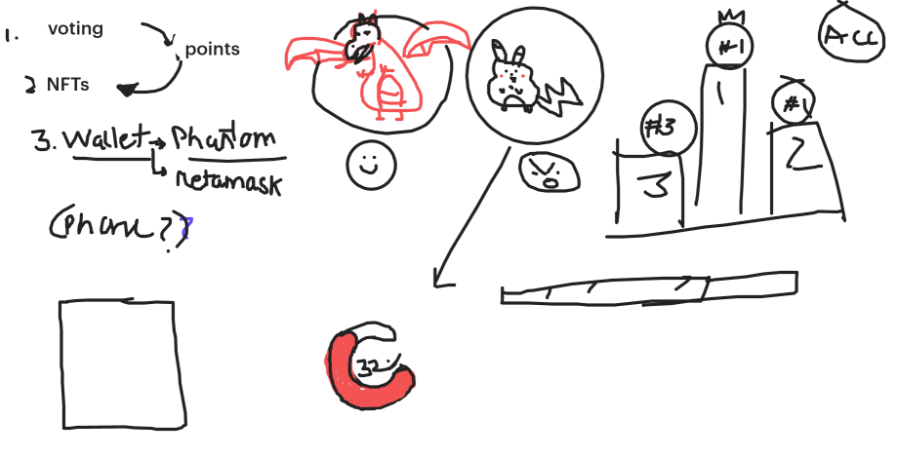 1. voting
points
2 NFTs
3. Wallet → Phantom
↳ Metamask
(Phone??)
#1
#3
#1
1
3
2
ACC
32